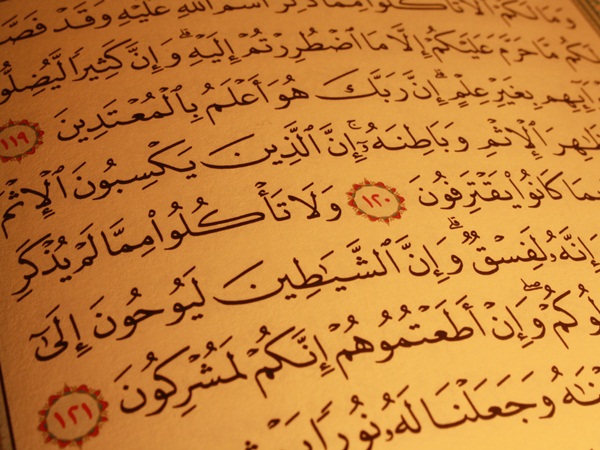 وَمَا لَكُمْ أَلَّا تَأْكُلُوا۟ مِمَّا ذُكِرَ ٱسْمُ ٱللَّهِ عَلَيْهِ وَقَدْ فَصَّ
لَكُم مَّا حَرَّمَ عَلَيْكُمْ إِلَّا مَا ٱضْطُرِرْتُمْ إِلَيْهِ ۗ وَإِنَّ كَثِيرًا لَّيُضِلُّو
وَآئِهِم بِغَيْرِ عِلْمٍ ۗ إِنَّ رَبَّكَ هُوَ أَعْلَمُ بِٱلْمُعْتَدِينَ ١١٩
ظَٰهِرَ ٱلْإِثْمِ وَبَاطِنَهُۥٓ ۚ إِنَّ ٱلَّذِينَ يَكْسِبُونَ ٱلْإِثْمَ
بِمَا كَانُوا۟ يَقْتَرِفُونَ ١٢٠ وَلَا تَأْكُلُوا۟ مِمَّا لَمْ يُذْكَرِ
وَإِنَّهُۥ لَفِسْقٌ ۗ وَإِنَّ ٱلشَّيَٰطِينَ لَيُوحُونَ إِلَىٰٓ
لُوكُمْ ۖ وَإِنْ أَطَعْتُمُوهُمْ إِنَّكُمْ لَمُشْرِكُونَ ١٢١
نَٰهُ وَجَعَلْنَا لَهُۥ نُورًا